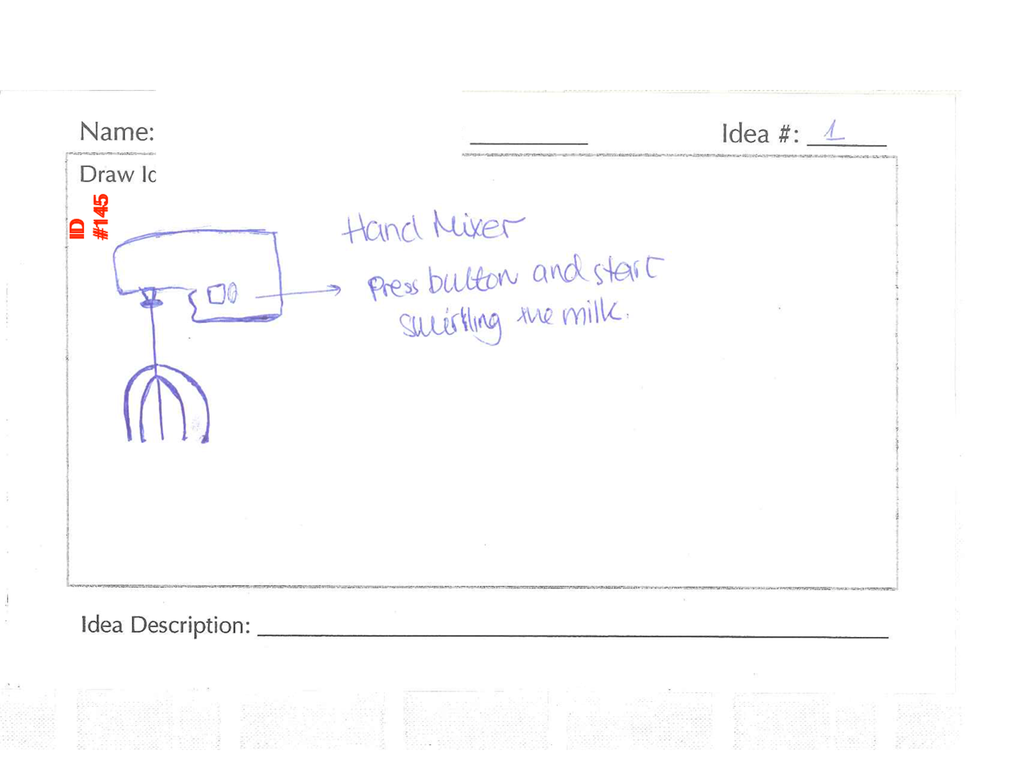 Name:
Idea #: 1
Draw Id
ID
#145
Hand Mixer
Press button and start
swirling the milk.
Idea Description: